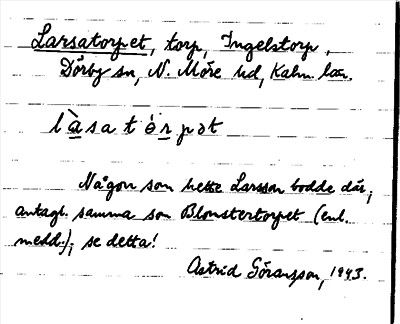 Larsatorpet, torp, Ingelstorp,
Dörby sn, N. Möre hd, Kalm. län.
l à s a t ó r p ə t
Någon som hette Larsson bodde där;
antagl. samma som Blomstertorpet (enl.
medd.); se detta!
Astrid Göransson, 1943.